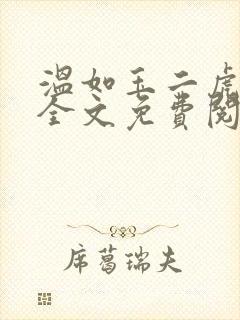 温如玉二虎
全文免费閱
席葛瑞夫